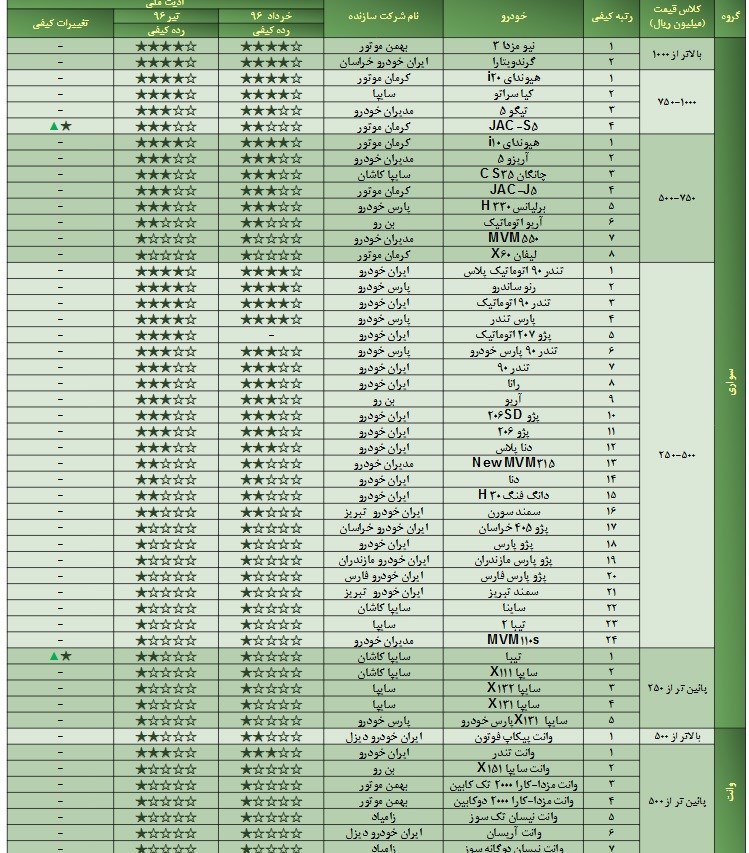 گروه کلاس قیمت (میلیون ریال) رتبه کیفی خودرو نام شرکت سازنده خرداد ۹۶ تیر ۹۶ تغییرات کیفی
رده کیفی رده کیفی
سواری
بالاتر از ۱۰۰۰
۱ نیو مزدا ۳ بهمن موتور -
۲ گرندویتارا ایران خودرو خراسان -
۷۵۰-۱۰۰۰
۱ هیوندای i۲۰ کرمان موتور -
۲ کیا سراتو سایپا -
۳ تیگو ۵ مدیران خودرو -
۴ JAC -S۵ کرمان موتور ▲★
۵۰۰-۷۵۰
۱ هیوندای i۱۰ کرمان موتور -
۲ آریزو ۵ مدیران خودرو -
۳ چانگان C S۳۵ سایپا کاشان -
۴ JAC -J۵ کرمان موتور -
۵ برلیانس H ۳۳۰ پارس خودرو -
۶ آریو اتوماتیک بن رو -
۷ MVM ۵۵۰ مدیران خودرو -
۸ لیفان X۶۰ کرمان موتور -
۲۵۰-۵۰۰
۱ تندر ۹۰ اتوماتیک پلاس ایران خودرو -
۲ رنو ساندرو پارس خودرو -
۳ تندر ۹۰ اتوماتیک ایران خودرو -
۴ پارس تندر پارس خودرو -
۵ پژو ۲۰۷ اتوماتیک ایران خودرو - -
۶ تندر ۹۰ پارس خودرو پارس خودرو -
۷ تندر ۹۰ ایران خودرو -
۸ رانا ایران خودرو -
۹ آریو بن رو -
۱۰ پژو ۲۰۶SD ایران خودرو -
۱۱ پژو ۲۰۶ ایران خودرو -
۱۲ دنا پلاس ایران خودرو -
۱۳ New MVM۳۱۵ مدیران خودرو -
۱۴ دنا ایران خودرو -
۱۵ دانگ فنگ H ۳۰ ایران خودرو -
۱۶ سمند سورن ایران خودرو تبریز -
۱۷ پژو ۴۰۵ خراسان ایران خودرو خراسان -
۱۸ پژو پارس ایران خودرو -
۱۹ پژو پارس مازندران ایران خودرو مازندران -
۲۰ پژو پارس فارس ایران خودرو فارس -
۲۱ سمند تبریز ایران خودرو تبریز -
۲۲ ساینا سایپا کاشان -
۲۳ تیبا ۲ سایپا -
۲۴ MVM ۱۱۰s مدیران خودرو -
پائین تر از ۲۵۰
۱ تیبا سایپا کاشان ▲★
۲ سایپا X۱۱۱ سایپا کاشان -
۳ سایپا X۱۳۲ سایپا -
۴ سایپا X۱۳۱ سایپا -
۵ سایپا X۱۳۱ پارس خودرو پارس خودرو -
وانت
بالاتر از ۵۰۰
۱ وانت پیکاپ فوتون ایران خودرو دیزل -
پائین تر از ۵۰۰
۱ وانت تندر ایران خودرو -
۲ وانت سایپا X۱۵۱ بن رو -
۳ وانت مزدا-کارا ۲۰۰۰ تک کابین بهمن موتور -
۴ وانت مزدا-کارا ۲۰۰۰ دوکابین بهمن موتور -
۵ وانت نیسان تک سوز زامیاد -
۶ وانت آریسان ایران خودرو دیزل -
۷ وانت نیسان دوگانه سوز زامیاد -